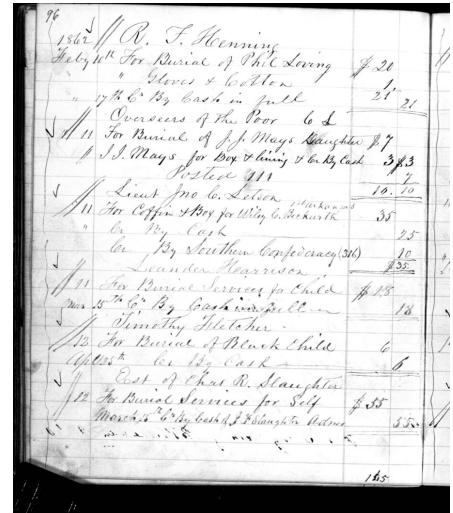 96
1862 R. F. Henning
Feby 10th For Burial of Phil Loving $20
" Gloves & Cotton 1
" 17th Cr By Cash in full 21 21
Overseers of the Poor 6 L
11 For Burial of J. J. Mays Daughter $7
" J. J. Mays for Box & lining & Cr By Cash 3 $3
Posted 111 7
10. 10
Lieut Jno C. Letson
1st Arkansas
11 For Coffin & Box for Wiley C. Beckwith 35
" Cr By Cash 25
Cr By Southern Confederacy (316) 10
$35
Leander Harrison
11 For Burial Services for Child $18
Mar 15th Cr By Cash in full 18
Timothy Fletcher
12 For Burial of Black Child 6
Apl 25th Cr By Cash 6
Est of Chas R. Slaughter
12 For Burial Services for Self $55
March 15th Cr By Cash of Slaughter Admr 55